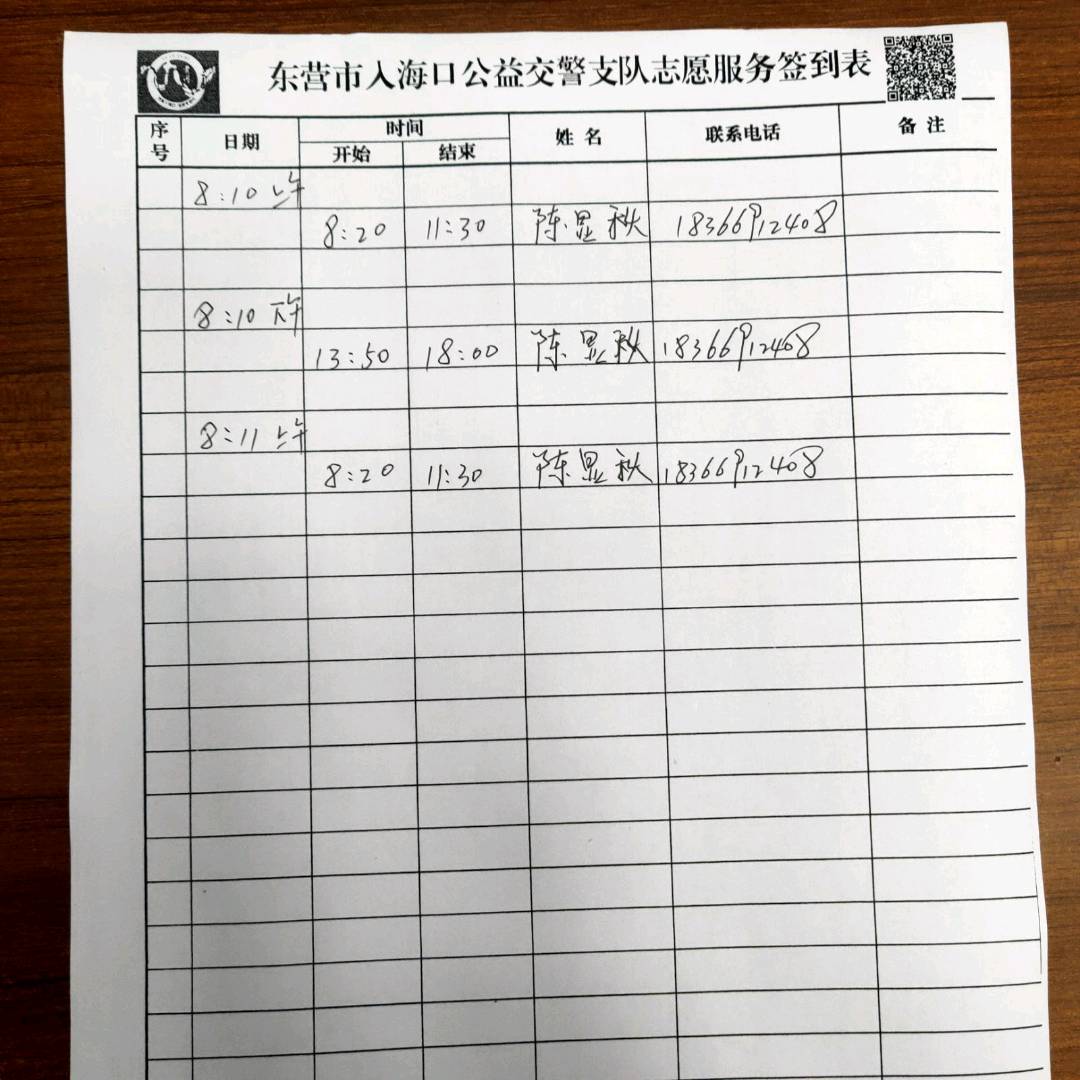 东营市入海口公益交警支队志愿服务签到表
序号 日期 时间 姓名 联系电话 备注
开始 结束
8:10 上午
8:20 11:30 陈显秋 18366912408
8:10 下午
13:50 18:00 陈显秋 18366912408
8:11 上午
8:20 11:30 陈显秋 18366912408